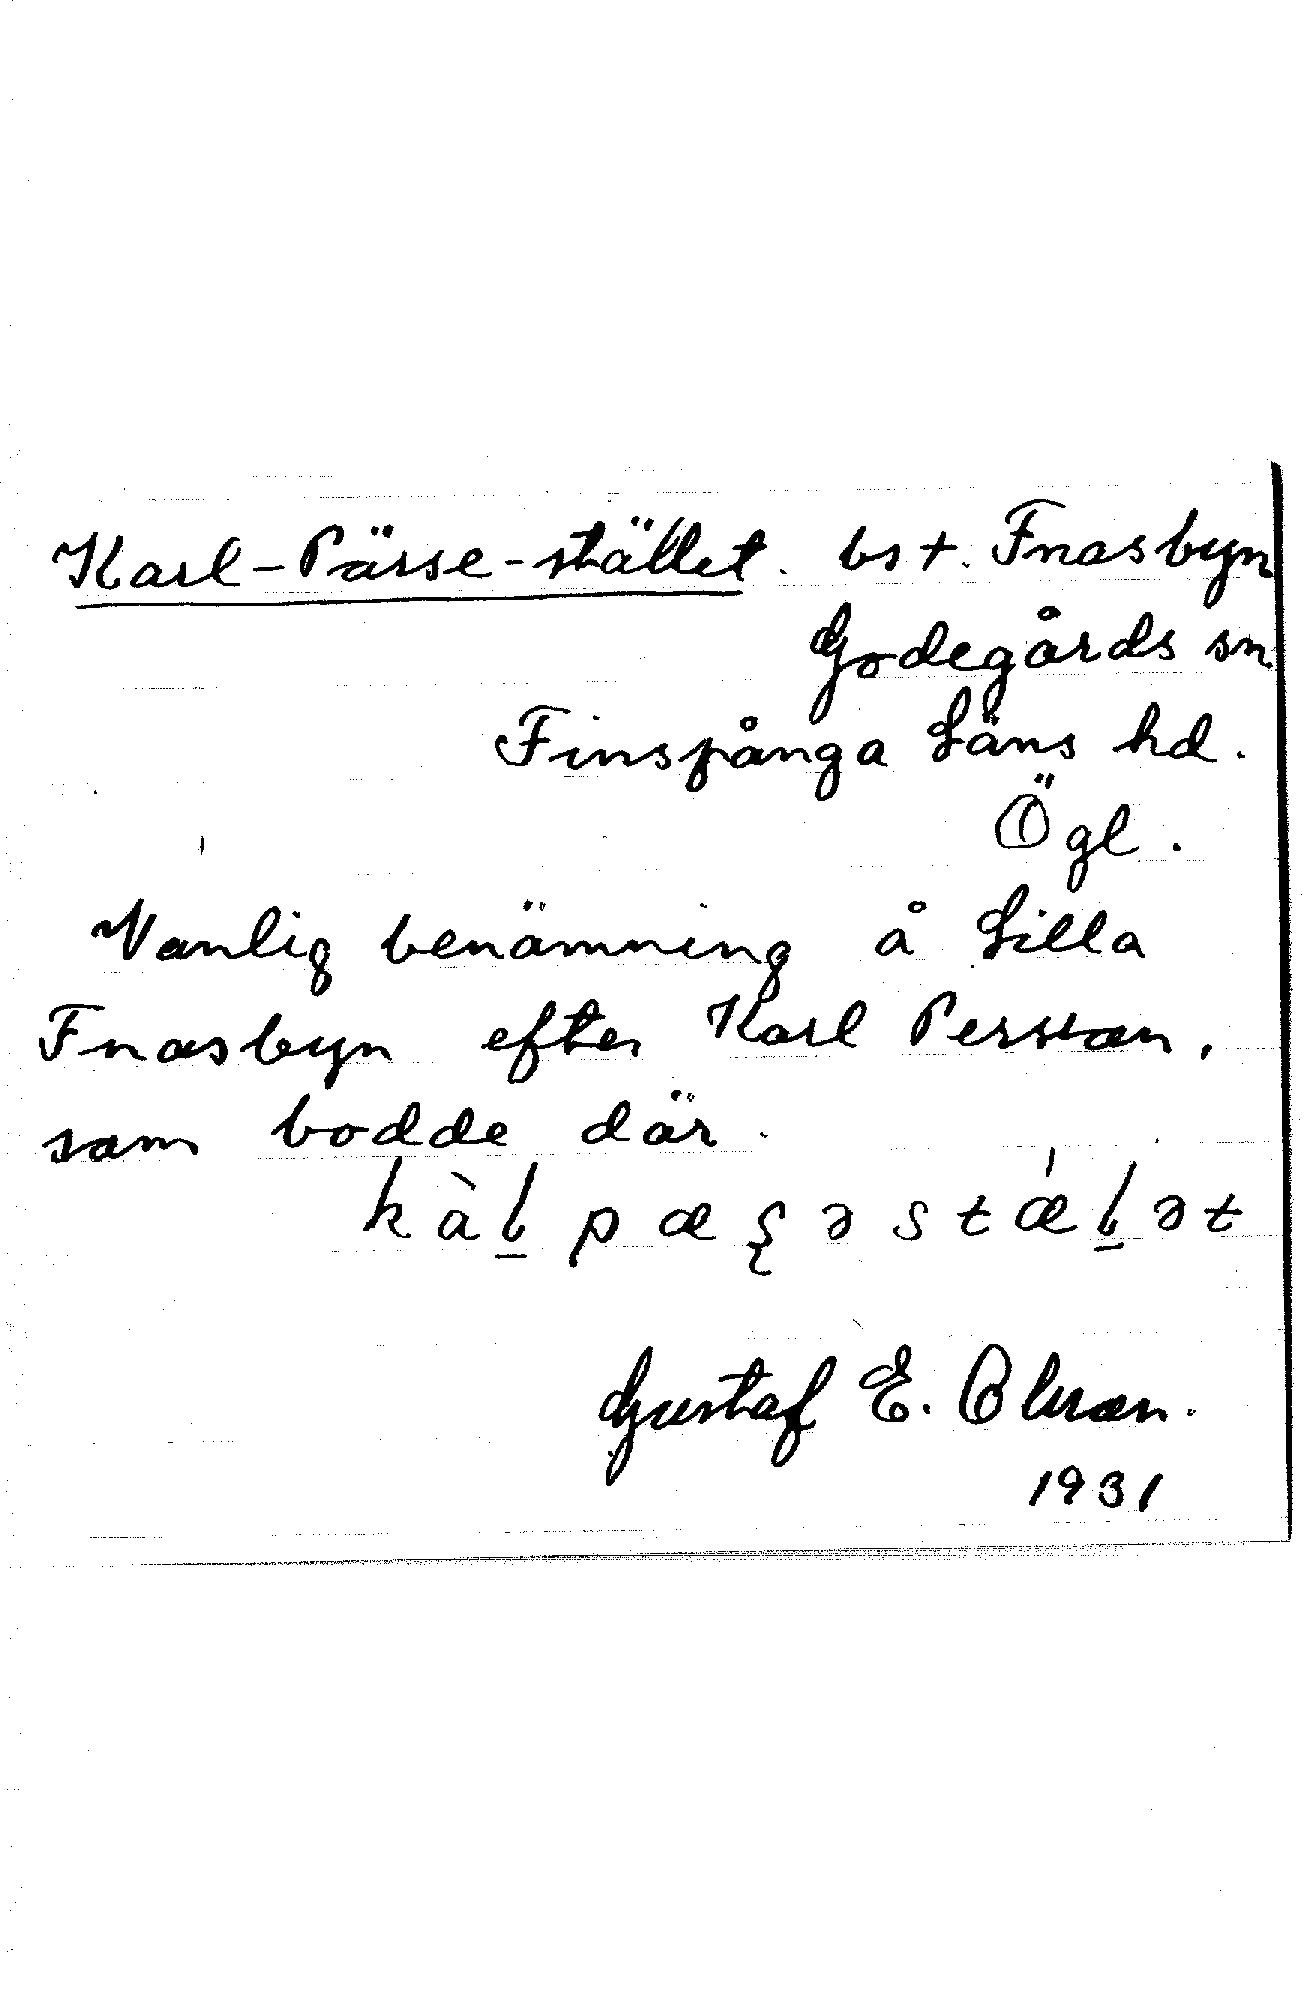 Karl-Pärsse-stället. bst. Fnasbyn
Godegårds sn
Finspånga Läns hd.
Ögl.
Vanlig benämning å Lilla
Fnasbyn efter Karl Persson,
som bodde där.
kàḻ pæʂəstǽḻət
Gustaf E. Olsson.
1931